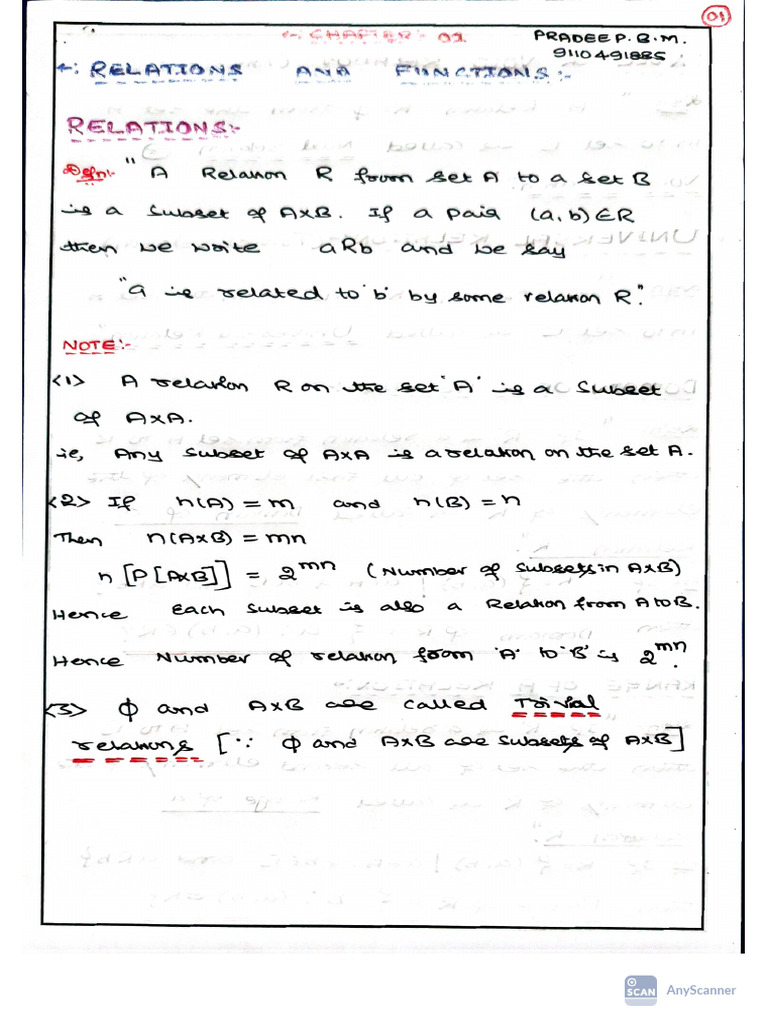 01
:- CHAPTER:- 01
PRADEEP. B.M.
9110491885
:- RELATIONS AND FUNCTIONS:-
RELATIONS:-
Defn:- " A Relation R from set A to a set B
is a subset of AxB. If a pair (a, b) ∈ R
then we write aRb and we say
"a is related to 'b' by some relation R".
NOTE:-
<1> A relation R on the set 'A' is a subset
of AxA.
ie, Any subset of AxA is a relation on the set A.
<2> If n(A) = m and n(B) = n
Then n(AxB) = mn
n[P[AxB]] = 2^mn (Number of subsets in AxB)
Hence Each subset is also a Relation from A to B.
Hence Number of relation from 'A' to 'B' is 2^mn.
<3> ϕ and AxB are called Trivial
relations [∵ ϕ and AxB are subsets of AxB]
SCAN AnyScanner